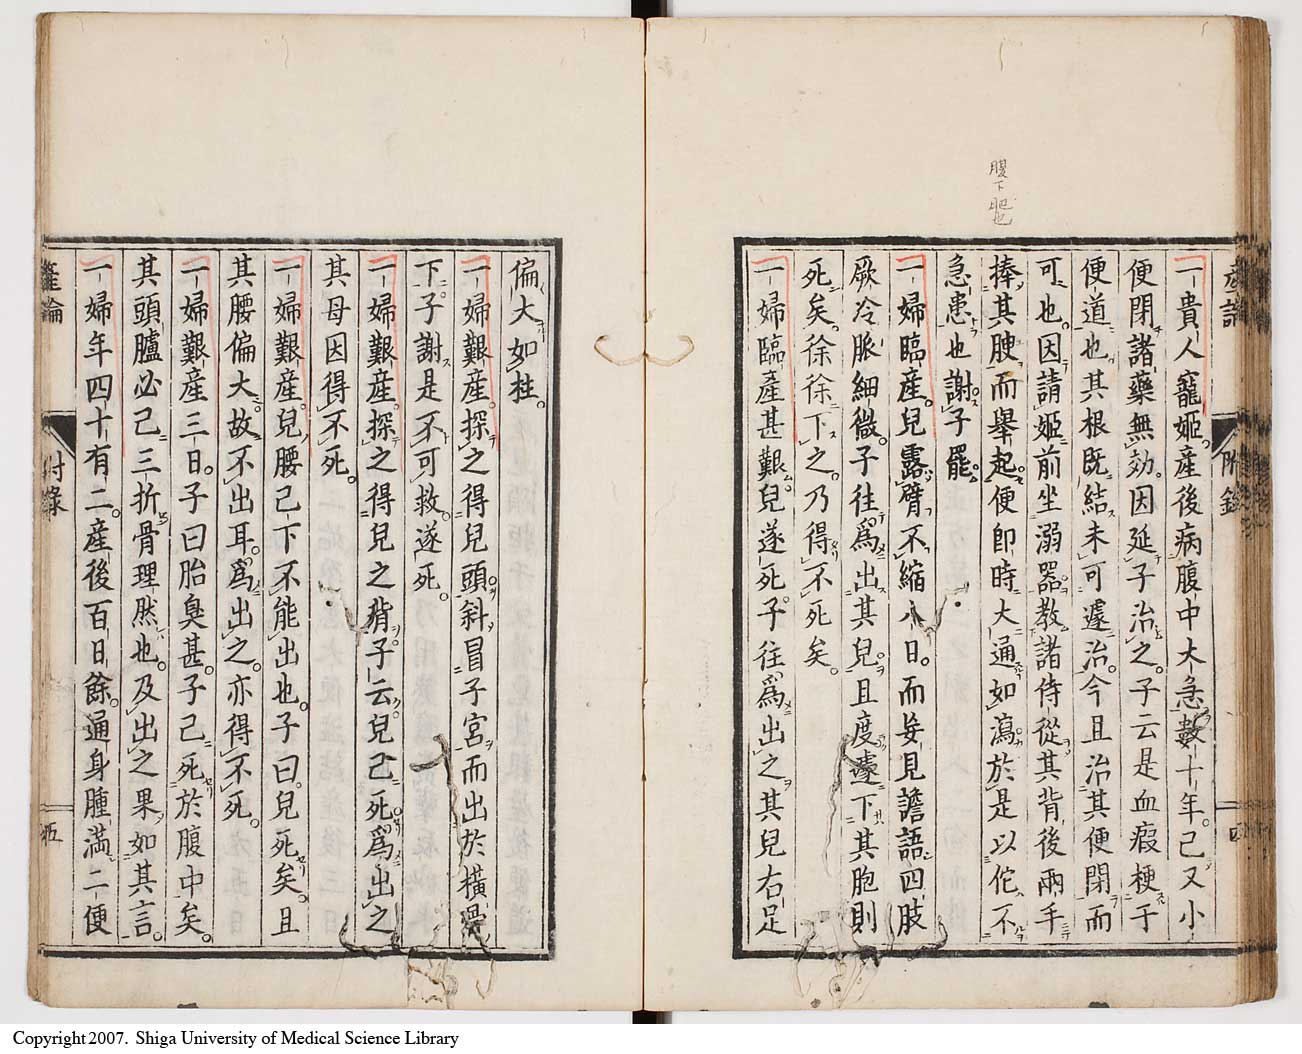 腹
下
肥也
産論
附錄
四
一貴人寵姬產後病腹中大急數十年。己又小
便閉諸藥無効。因延子治之。子云是血瘕梗于
便道也其根既結未可遽治。今且治其便閉而
可也。因請姬前坐溺器。教諸侍從其背後兩手
捧其腴而舉起。便即時大通如瀉。於是以佗不
急患也謝子罷
一婦臨產。兒露臂不縮八日。而妄見譫語四肢
厥冷脈細微。子往爲出其兒。且度遽下其胞則
死矣。徐徐下之。乃得不死矣。
一婦臨產甚艱。兒遂死。子往爲出之其兒右足
偏大如柱。
一婦艱產。探之得兒頭斜冒子宮而出於橫骨
下。子謝是不可救。遂死。
一婦艱產。探之得兒之背。子云兒己死。爲出之
其母因得不死。
一婦艱產。兒腰己下不能出也。子曰。兒死矣。且
其腰偏大。故不出耳。爲出之。亦得不死。
一婦艱產三日。子曰胎臭甚。子己死於腹中矣。
其頭臚必己三折骨理然也。及出之果如其言。
一婦年四十有二。產後百日餘。遍身腫滿二便
產論
附錄
五
Copyright 2007. Shiga University of Medical Science Library